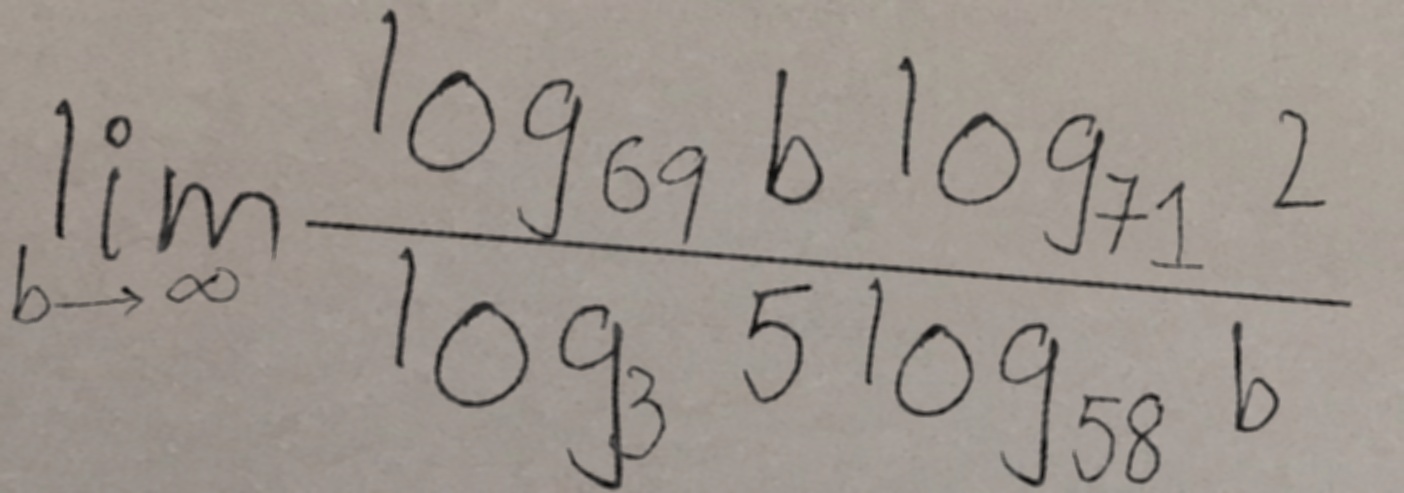 \lim_{b \to \infty} \frac{\log_{69} b \log_{71} 2}{\log_{3} 5 \log_{58} b}